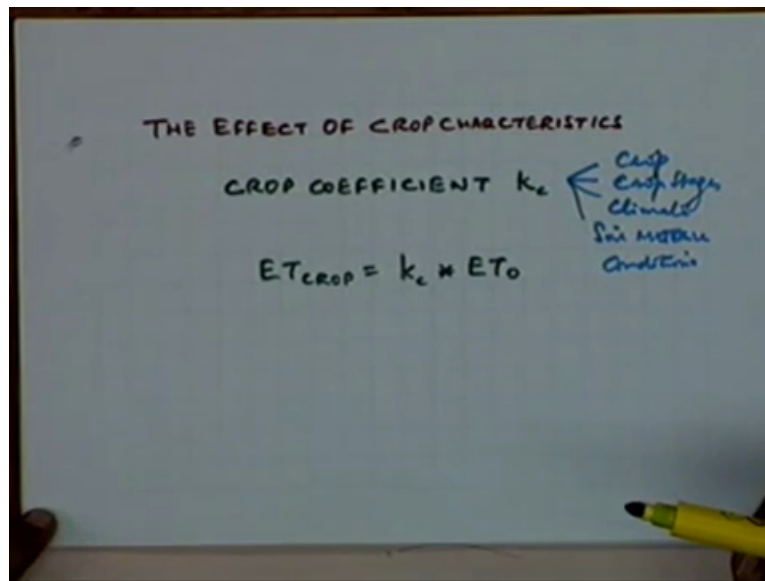 THE EFFECT OF CROP CHARCTERISTICS
CROP COEFFICIENT kc
Crop
Crop Stages
Climate
Soil
Conditions
ETCROP = kc * ETO